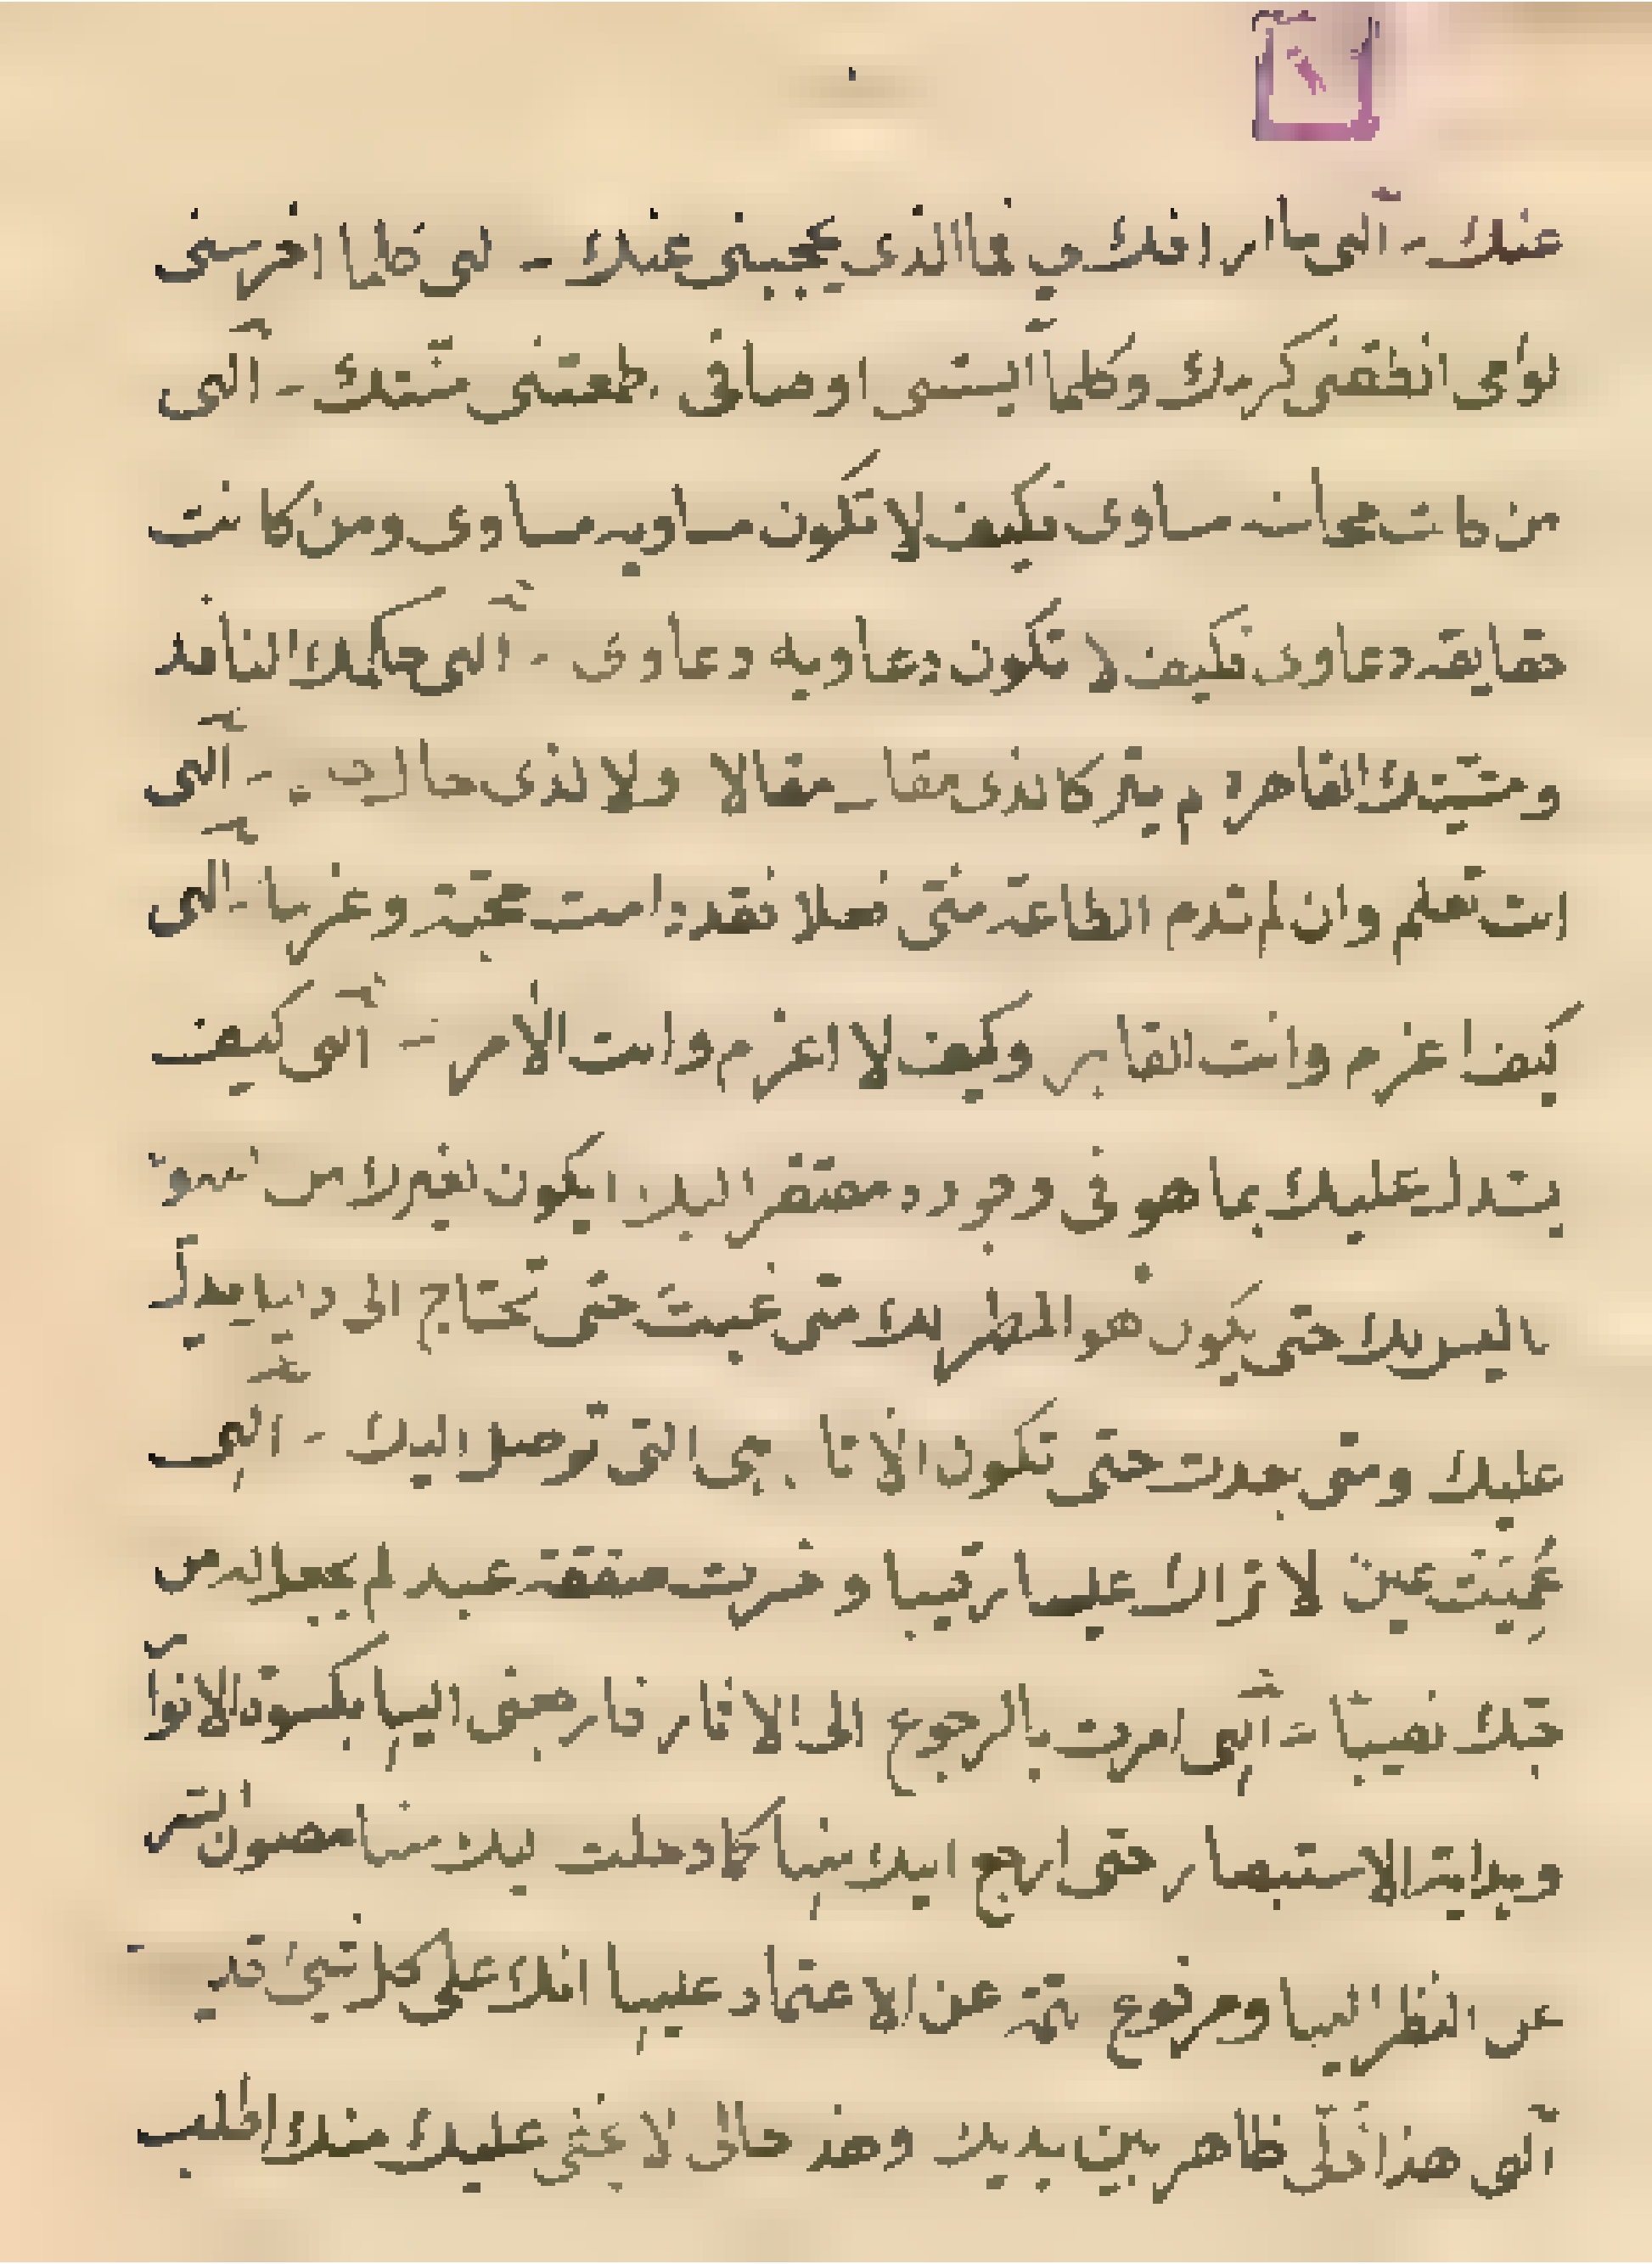 عنك - آلهى ما ارافك بي فما الذى يحجبنى عنك - لهى كلما اخرسنى
لؤمى انطقنى كرمك وكلما آيستنى اوصافى اطمعتنى منّتك - آلهى
من كانت محاسنه مساوى فكيف لا تكون مساويه مساوى ومن كانت
حقايقه دعاوى فكيف لا تكون دعاويه دعاوى - آلهى حكمك النافذ
ومشيّتك القاهرة لم يتركا لذى مقال مقالا ولا لذى حال - آلهى
انت تعلم وان لم تدم الطاعة منّى فعلا فقد دامت محبّة وعزما - آلهى
كيف اعزم وانت القاهر وكيف لا اعزم وانت الأمر - آلهى كيف
يستدل عليك بما هو فى وجوده مفتقر اليك ايكون لغيرك من
ما ليس لك حتى يكون هو المظهر لك متى غبت حتى تحتاج الى دليل يدل
عليك ومتى بعدت حتى تكون الأثار هى التى توصل اليك - آلهى
عميت عين لا تراك عليها رقيبا وخسرت صفقة عبد لم يجعل له من
حبّك نصيبًا - آلهى امرت بالرجوع الى الاثار فارجعنى اليها بكسوة الانوار
وهداية الاستبصار حتى ارجع اليك منها كما دخلت اليك منها مصون السّر
عن النظر اليها ومرفوع الهمّة عن الاعتماد عليها انك على كل شىء قدير
آلهى هذا ذلّى ظاهر بين يديك وهذ حالى لا يخفى عليك منك اطلب